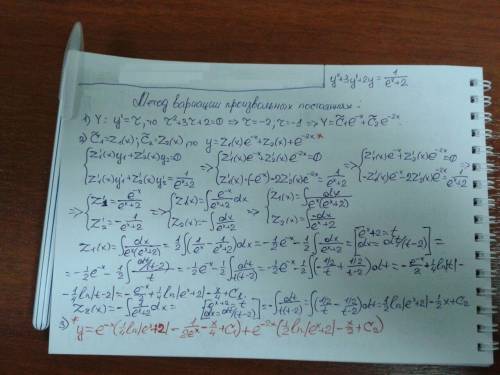 y''+3y'+2y = 1/(eˣ+2)
Метод вариации произвольных постоянных:
1) Y = y' = τ, то τ²+3τ+2=0 ⇒ τ=-2; τ=-1 ⇒ Y = C̃₁e⁻ˣ + C̃₂e⁻²ˣ
2) C̃₁=Z₁(x); C̃₂=Z₂(x), то y = Z₁(x)e⁻ˣ+Z₂(x)+e⁻²ˣ *
{Z₁'(x)y₁+Z₂'(x)y₂=0 ⇒ {Z₁'(x)e⁻ˣ+Z₂'(x)e⁻²ˣ=0 ⇒ {Z₁'(x)e⁻ˣ+Z₂'(x)e⁻²ˣ=0 ⇒
{Z₁'(x)y₁'+Z₂'(x)y₂'=1/(eˣ+2) {Z₁'(x)·(-e⁻ˣ)-2Z₂'(x)e⁻²ˣ=1/(eˣ+2) {-Z₁'(x)e⁻ˣ-2Z₂'(x)e⁻²ˣ=1/(eˣ+2)
⇒ ⇒ {Z₁(x)=∫ dx ⇒ {Z₁(x)=∫dx/(eˣ(eˣ+2))
{Z₂'=- Z₂(x)=-∫ Z₂(x)=∫-dx/(eˣ+2)
Z₁(x)=∫dx/(eˣ(eˣ+2)) = ½∫(1/eˣ - 1/(eˣ+2))dx = -½e⁻ˣ-½∫dx/(eˣ+2) = [eˣ+2=t; dx=dt/(t-2)] =
= -½e⁻ˣ-½∫(dt/(t-2))/t = -½e⁻ˣ-½∫dt/(t(t-2)) = -½e⁻ˣ-½∫(-(1/2)/t+(1/2)/(t-2))dt = -e⁻ˣ/2+¼ln|t|-
-¼ln|t-2| = -e⁻ˣ/2+¼ln|eˣ+2|-x/4+C₁
Z₂(x)=-∫1/(eˣ+2)dx = [eˣ+2=t; dx=dt/(t-2)] = -∫dt/(t(t-2)) = ∫((1/2)/t-(1/2)/(t-2))dt = ½ln|eˣ+2|-½x+C₂
3) * y = e⁻ˣ(¼ln|eˣ+2| - 1/(2eˣ) - x/4 + C₁) + e⁻²ˣ(½ln|eˣ+2| - x/2 + C₂)